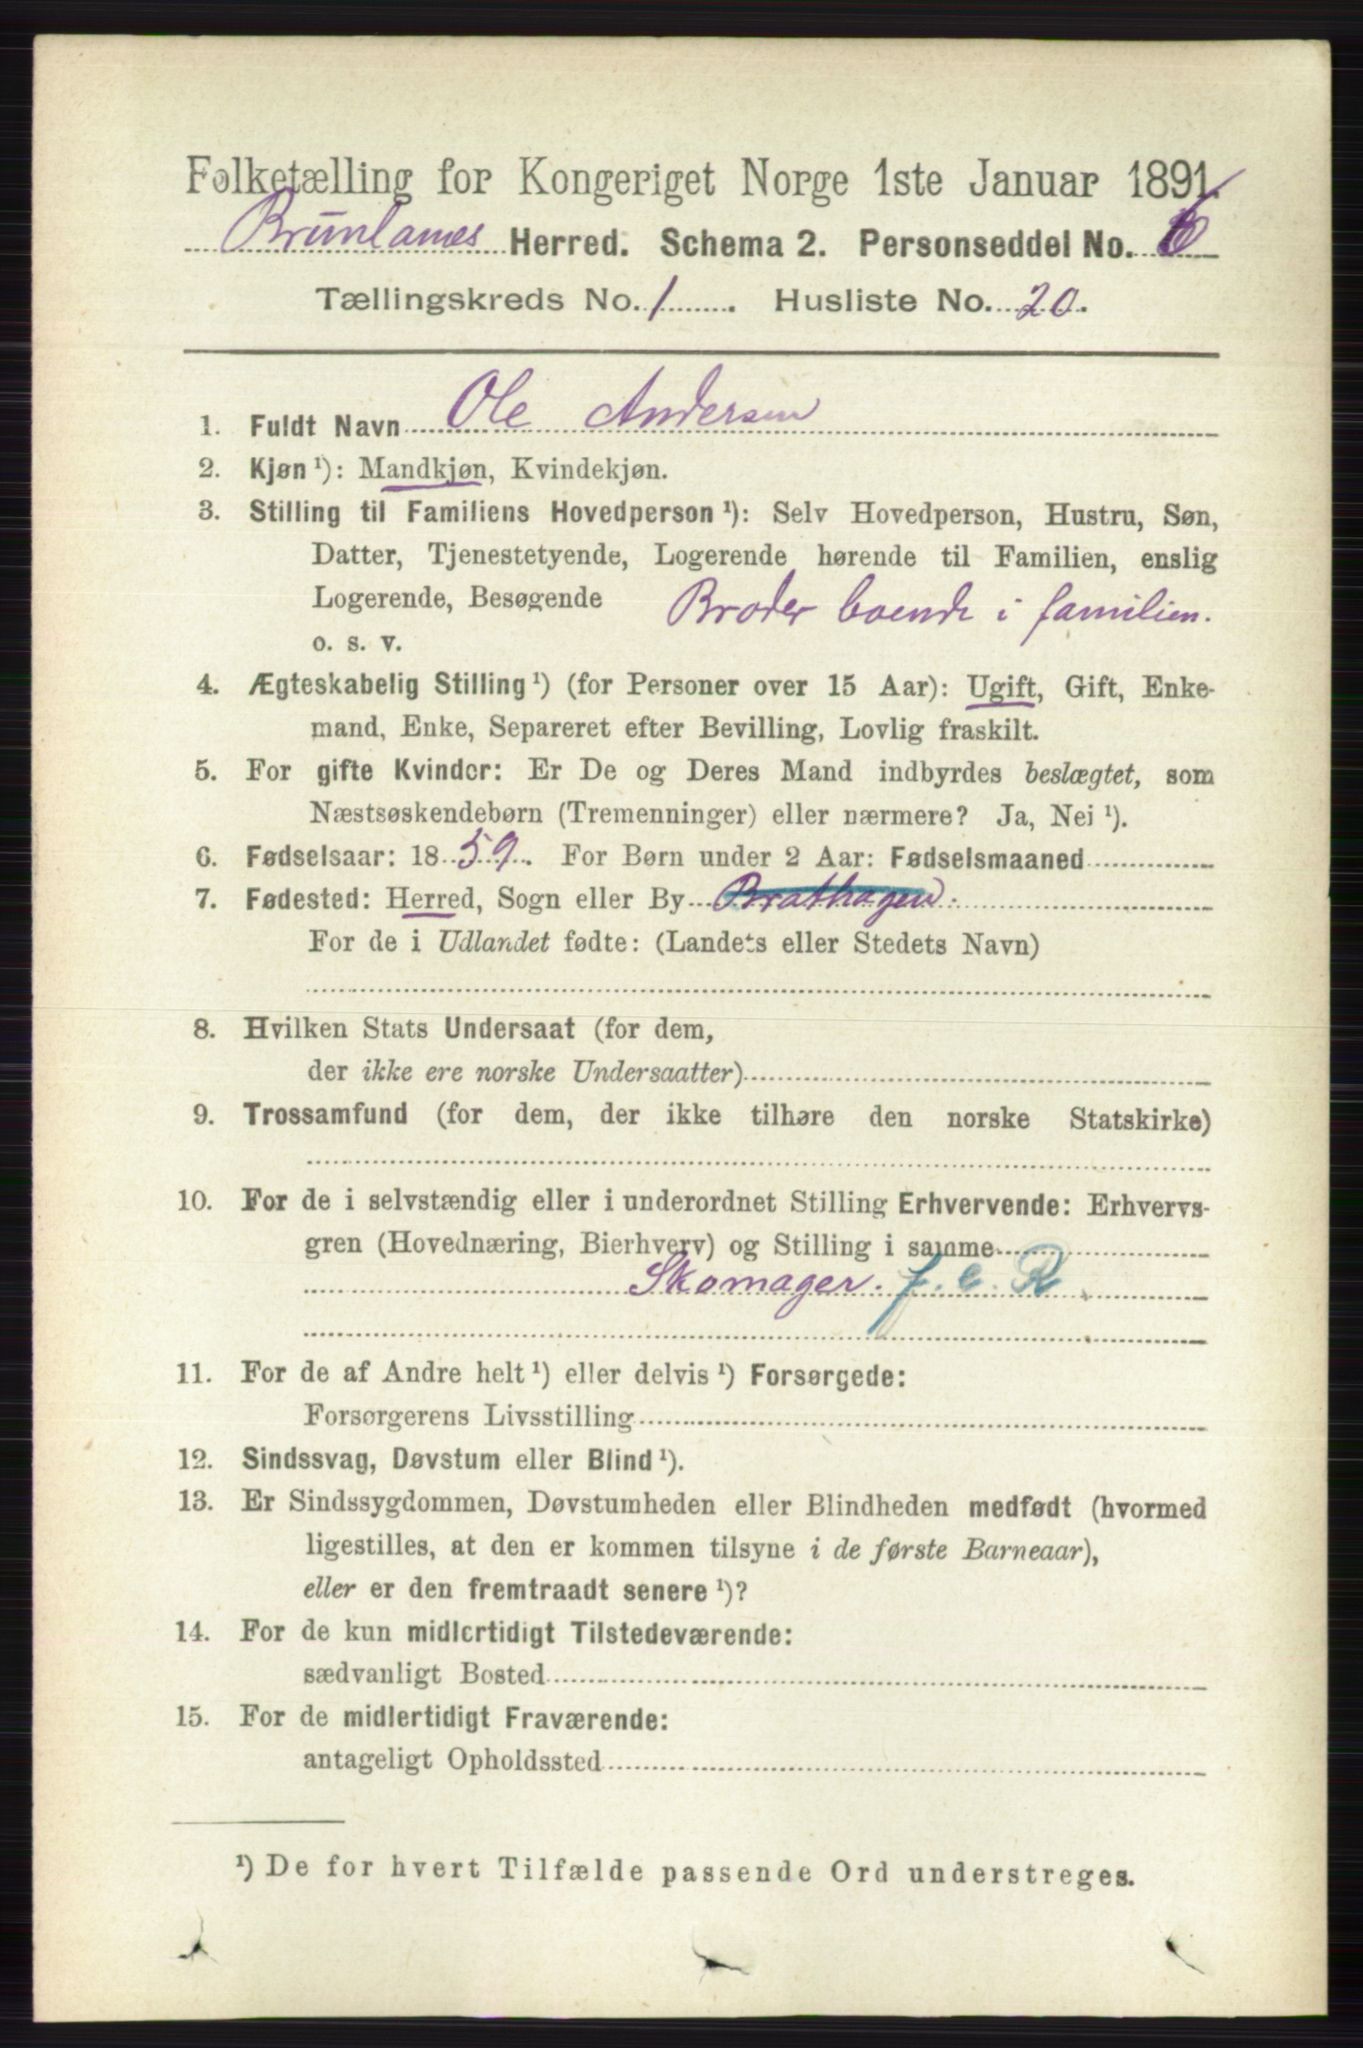 Folketælling for Kongeriget Norge 1ste Januar 1891.
Brunlanes Herred. Schema 2. Personseddel No. 6
Tællingskreds No. 1. Husliste No. 20.
1. Fuldt Navn Ole Andersen
2. Kjøn ¹): Mandkjøn, Kvindekjøn.
3. Stilling til Familiens Hovedperson ¹): Selv Hovedperson, Hustru, Søn,
Datter, Tjenestetyende, Logerende hørende til Familien, enslig
Logerende, Besøgende Broder boende i familien.
o. s. v.
4. Ægteskabelig Stilling ¹) (for Personer over 15 Aar): Ugift, Gift, Enke-
mand, Enke, Separeret efter Bevilling, Lovlig fraskilt.
5. For gifte Kvinder: Er De og Deres Mand indbyrdes beslægtet, som
Næstsøskendebørn (Tremenninger) eller nærmere? Ja, Nei ¹).
6. Fødselsaar: 1859. For Børn under 2 Aar: Fødselsmaaned
7. Fødested: Herred, Sogn eller By Brathagen.
For de i Udlandet fødte: (Landets eller Stedets Navn)
8. Hvilken Stats Undersaat (for dem,
der ikke ere norske Undersaatter)
9. Trossamfund (for dem, der ikke tilhøre den norske Statskirke)
10. For de i selvstændig eller i underordnet Stilling Erhvervende: Erhvervs-
gren (Hovednæring, Bierhverv) og Stilling i samme
Skomager. f. e. R
11. For de af Andre helt ¹) eller delvis ¹) Forsørgede:
Forsørgerens Livsstilling
12. Sindssvag, Døvstum eller Blind ¹).
13. Er Sindssygdommen, Døvstumheden eller Blindheden medfødt (hvormed
ligestilles, at den er kommen tilsyne i de første Barneaar),
eller er den fremtraadt senere ¹)?
14. For de kun midlertidigt Tilstedeværende:
sædvanligt Bosted
15. For de midlertidigt Fraværende:
antageligt Opholdssted
¹) De for hvert Tilfælde passende Ord understreges.